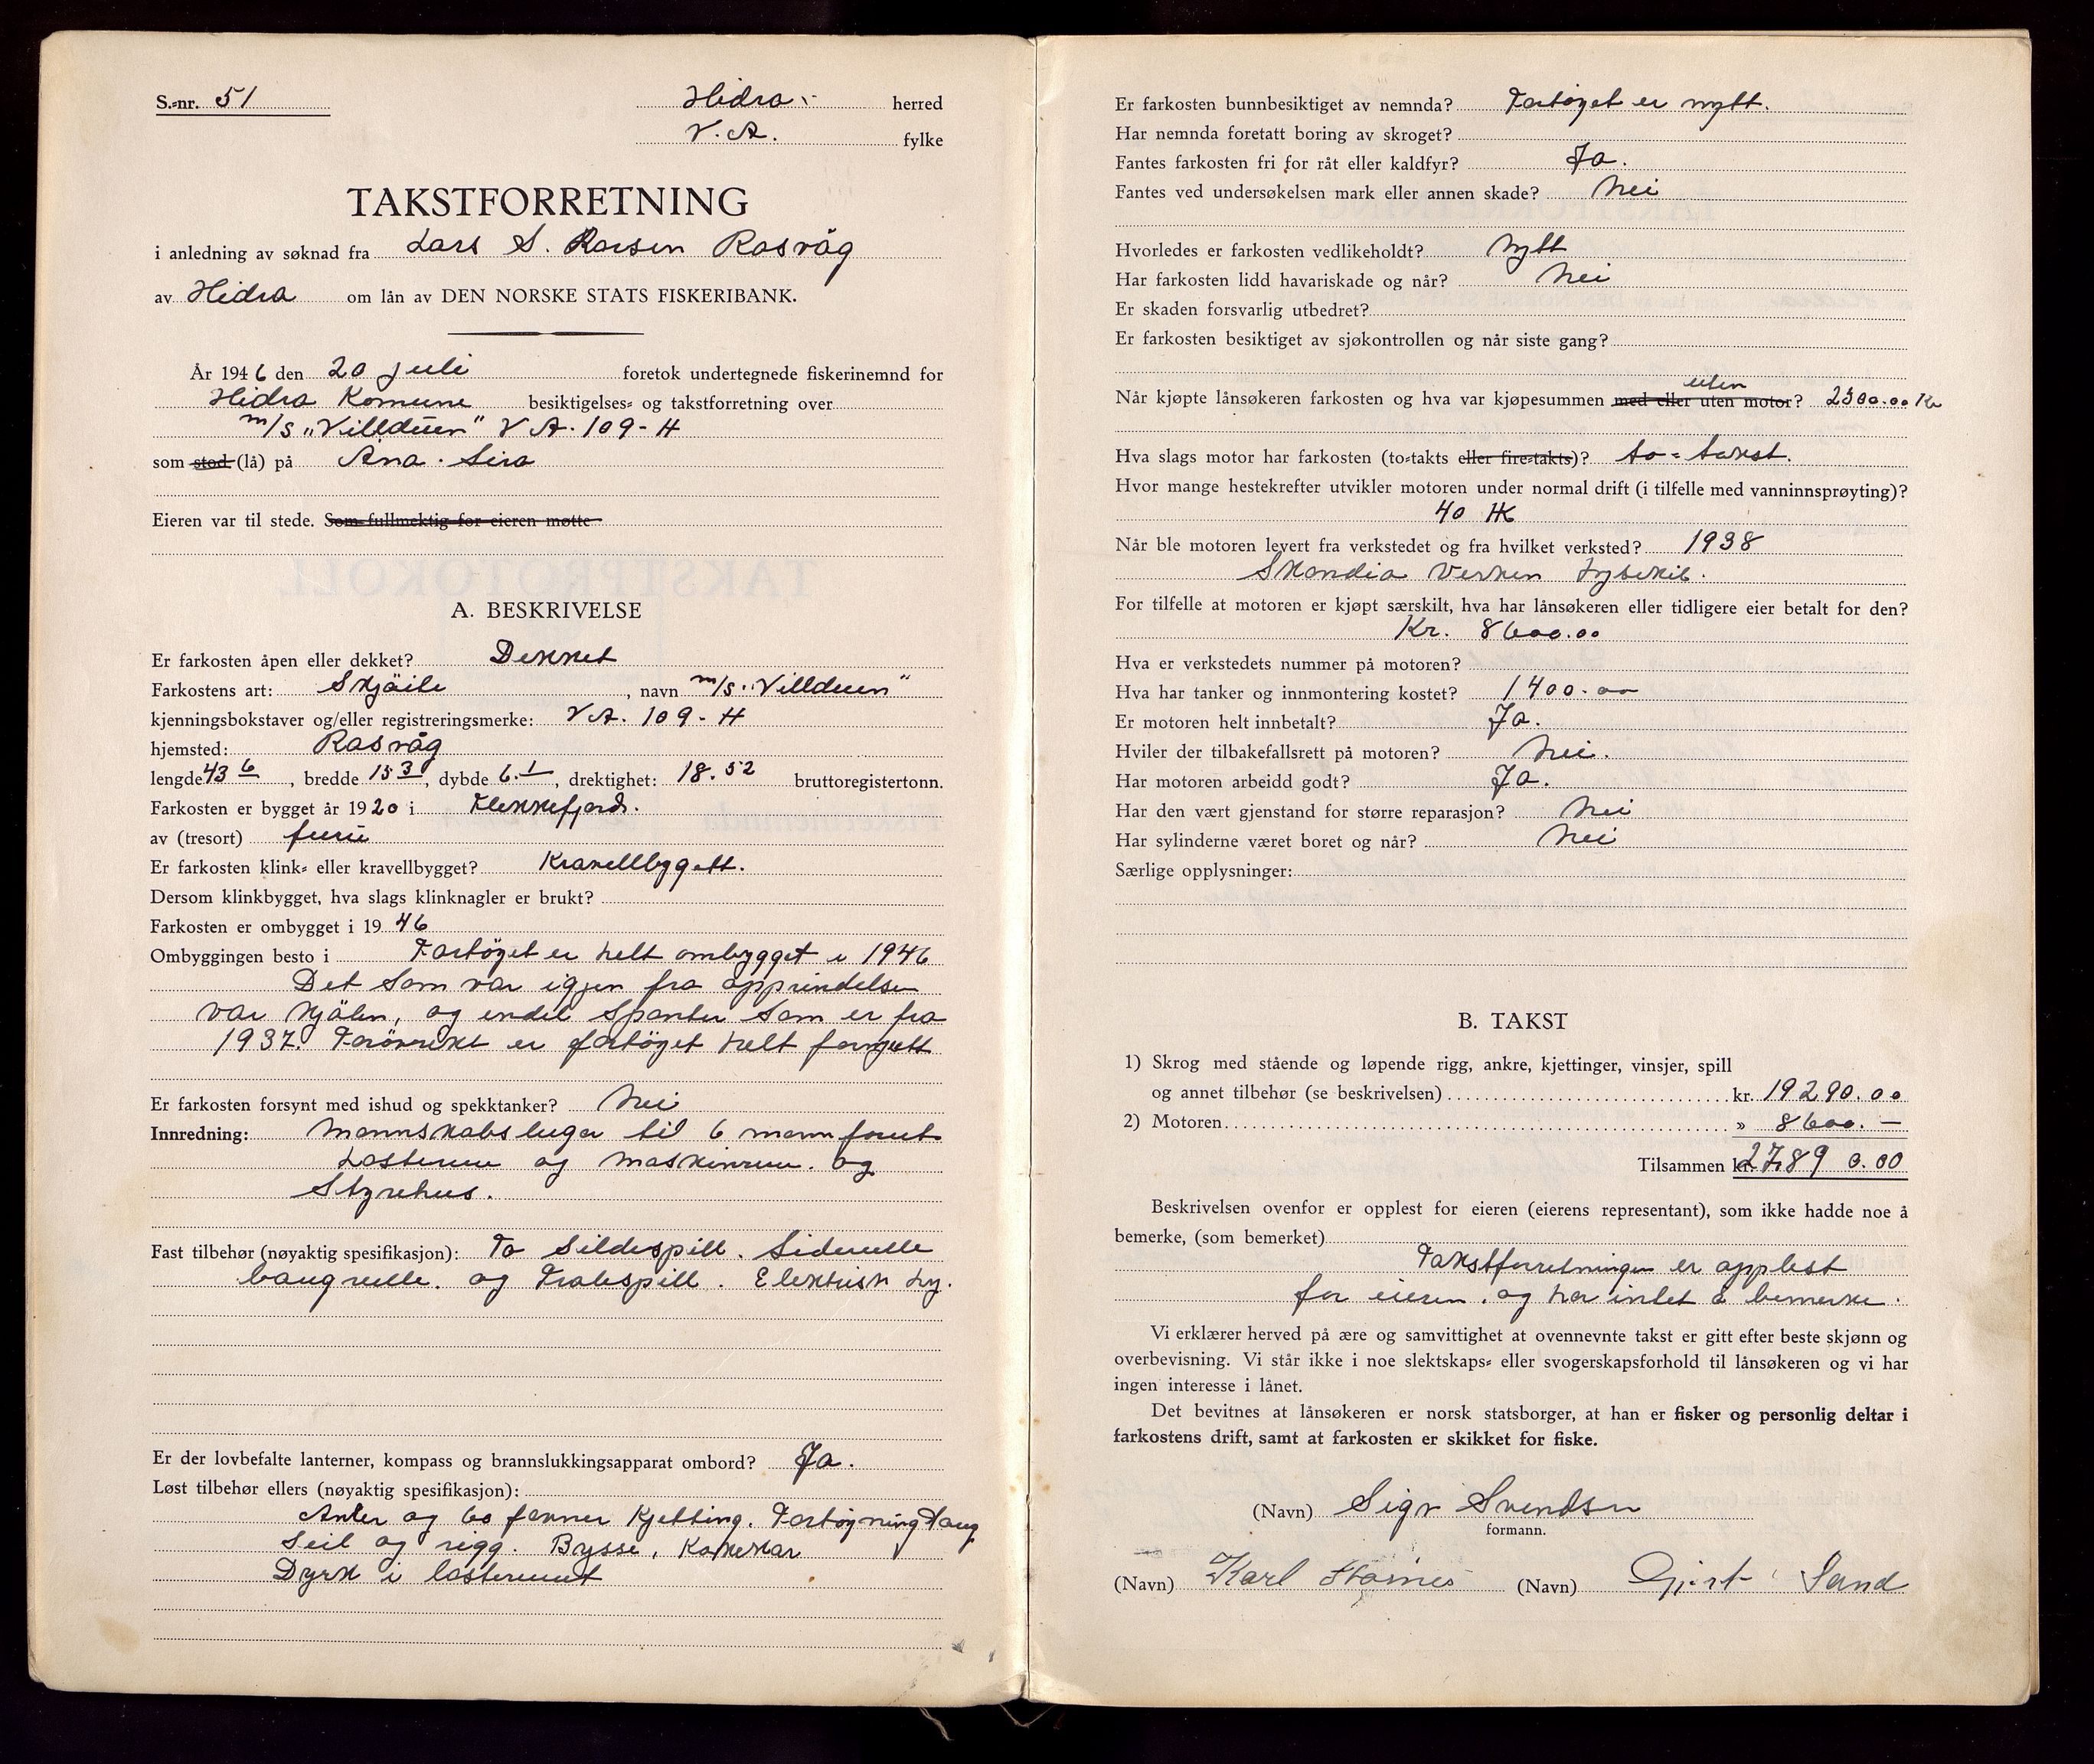 S.-nr. 51
Hidra herred
V. A. fylke
TAKSTFORRETNING
i anledning av søknad fra Lars S. Rasvåg
av Hidra om lån av DEN NORSKE STATS FISKERIBANK.
År 1946 den 20 juli foretok undertegnede fiskerinemnd for
Hidra Komune besiktigelses- og takstforretning over
m/s „Villduen" V A. 109 - H
som stod (lå) på Åna. Sira
Eieren var til stede. Som fullmektig for eieren møtte
A. BESKRIVELSE
Er farkosten åpen eller dekket? Dekket
Farkostens art: Skjöite, navn m/s. „Villduen"
kjenningsbokstaver og/eller registreringsmerke: V A. 109 - H
hjemsted: Rasvåg
lengde 43 6, bredde 15 3, dybde 6. 1, drektighet: 18. 52 bruttoregistertonn.
Farkosten er bygget år 1920 i Flekkefjord.
av (tresort) furu
Er farkosten klink- eller kravellbygget? Kravellbygett.
Dersom klinkbygget, hva slags klinknagler er brukt?
Farkosten er ombygget i 1946
Ombyggingen besto i Fartöyet er helt ombygget i 1946
Det som var igjen fra opprindelsen
var kjölen, og endel spanter som er fra
1937. Forövrikt er fartöyet helt fornyett
Er farkosten forsynt med ishud og spekktanker? Nei
Innredning: Mannskabslugar til 6 mann forut
Lasterum og maskinrum. og
Styrehus.
Fast tilbehør (nøyaktig spesifikasjon): To Sildespill. Siderulle
baugrulle. og Tralspill. Elektrisk ly.
Er der lovbefalte lanterner, kompass og brannslukkingsapparat ombord? Ja.
Løst tilbehør ellers (nøyaktig spesifikasjon):
Anker og 60 favner Kjetting. Fortöyningstaug
Seil og rigg. Bysse, Kokekar
Dyrk i lasterumet
Er farkosten bunnbesiktiget av nemnda? Fartöyet er nytt.
Har nemnda foretatt boring av skroget?
Fantes farkosten fri for råt eller kaldfyr? Ja.
Fantes ved undersøkelsen mark eller annen skade? Nei
Hvorledes er farkosten vedlikeholdt? Nytt
Har farkosten lidd havariskade og når? Nei
Er skaden forsvarlig utbedret?
Er farkosten besiktiget av sjøkontrollen og når siste gang?
uten
Når kjøpte lånsøkeren farkosten og hva var kjøpesummen med eller uten motor? 2500.00 Kr
Hva slags motor har farkosten (to-takts eller fire-takts)? to-takst.
Hvor mange hestekrefter utvikler motoren under normal drift (i tilfelle med vanninnsprøyting)?
40 HK
Når ble motoren levert fra verkstedet og fra hvilket verksted? 1938
Skandia Verken Lysekil.
For tilfelle at motoren er kjøpt særskilt, hva har lånsøkeren eller tidligere eier betalt for den?
Kr. 8600.00
Hva er verkstedets nummer på motoren?
Hva har tanker og innmontering kostet? 1400.00
Er motoren helt innbetalt? Ja.
Hviler der tilbakefallsrett på motoren? Nei.
Har motoren arbeidd godt? Ja.
Har den vært gjenstand for større reparasjon? Nei
Har sylinderne været boret og når? Nei
Særlige opplysninger:
B. TAKST
1) Skrog med stående og løpende rigg, ankre, kjettinger, vinsjer, spill
og annet tilbehør (se beskrivelsen) kr. 19290.00
2) Motoren » 8600. —
Tilsammen kr. 27890.00
Beskrivelsen ovenfor er opplest for eieren (eierens representant), som ikke hadde noe å
bemerke, (som bemerket)
Takstforretningen er opplest
for eieren. og har intet å bemerke.
Vi erklærer herved på ære og samvittighet at ovennevnte takst er gitt efter beste skjønn og
overbevisning. Vi står ikke i noe slektskaps- eller svogerskapsforhold til lånsøkeren og vi har
ingen interesse i lånet.
Det bevitnes at lånsøkeren er norsk statsborger, at han er fisker og personlig deltar i
farkostens drift, samt at farkosten er skikket for fiske.
(Navn) Sigv Svendsen
formann.
(Navn) Karl (Navn) Gjert Sand